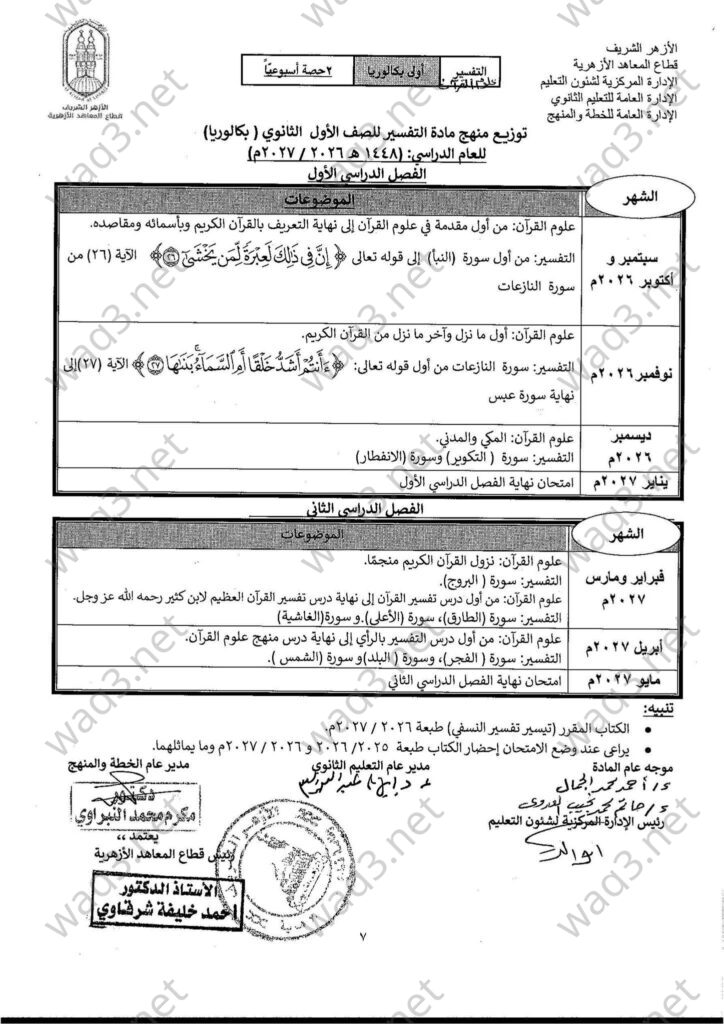 الأزهر الشريف
قطاع المعاهد الأزهرية
الإدارة المركزية لشئون التعليم
الإدارة العامة للتعليم الثانوي
الإدارة العامة للخطة والمنهج
التفسير
أولى بكالوريا
٢ حصة أسبوعيّاً
الأزهر الشريف
قطاع المعاهد الأزهرية
توزيع منهج مادة التفسير للصف الأول الثانوي ( بكالوريا)
للعام الدراسي: (١٤٤٨ هـ ٢٠٢٦ / ٢٠٢٧م)
الفصل الدراسي الأول
الشهر
الموضوعات
سبتمبر و
أكتوبر ٢٠٢٦م
علوم القرآن: من أول مقدمة في علوم القرآن إلى نهاية التعريف بالقرآن الكريم وبأسمائه ومقاصده.
التفسير: من أول سورة (النبأ) إلى قوله تعالى ﴿ إِنَّ فِي ذَٰلِكَ لَعِبْرَةً لِّمَن يَخْشَىٰٓ ۝٢٦ ﴾ الآية (٢٦) من
سورة النازعات
نوفمبر ٢٠٢٦م
علوم القرآن: أول ما نزل وآخر ما نزل من القرآن الكريم.
التفسير: سورة النازعات من أول قوله تعالى: ﴿ ءَأَنتُمْ أَشَدُّ خَلْقًا أَمِ ٱلسَّمَآءُ ۚ بَنَىٰهَا ۝٢٧ ﴾ الآية (٢٧)إلى
نهاية سورة عبس
ديسمبر
٢٠٢٦م
علوم القرآن: المكي والمدني.
التفسير: سورة ( التكوير) وسورة (الانفطار)
يناير ٢٠٢٧م
امتحان نهاية الفصل الدراسي الأول
الفصل الدراسي الثاني
الشهر
الموضوعات
فبراير ومارس
٢٠٢٧م
علوم القرآن: نزول القرآن الكريم منجمًا.
التفسير: سورة ( البروج).
علوم القرآن: من أول درس تفسير القرآن إلى نهاية درس تفسير القرآن العظيم لابن كثير رحمه الله عز وجل.
التفسير: سورة (الطارق)، سورة (الأعلى).و سورة(الغاشية)
أبريل ٢٠٢٧م
علوم القرآن: من أول درس التفسير بالرأي إلى نهاية درس منهج علوم القرآن.
التفسير: سورة ( الفجر)، وسورة ( البلد)و سورة (الشمس ).
مايو ٢٠٢٧م
امتحان نهاية الفصل الدراسي الثاني
تنبيه:
• الكتاب المقرر (تيسير تفسير النسفي) طبعة ٢٠٢٦ /٢٠٢٧م.
• يراعى عند وضع الامتحان إحضار الكتاب طبعة ٢٠٢٥/ ٢٠٢٦ و ٢٠٢٦ / ٢٠٢٧م وما يماثلهما.
موجه عام المادة
مدير عام التعليم الثانوي
مدير عام الخطة والمنهج
دكتور
مكرم محمد النبراوي
رئيس الإدارة المركزية لشئون التعليم
يعتمد ،،
رئيس قطاع المعاهد الأزهرية
الأستاذ الدكتور
احمد خليفة شرقاوي
٧
waq3.net